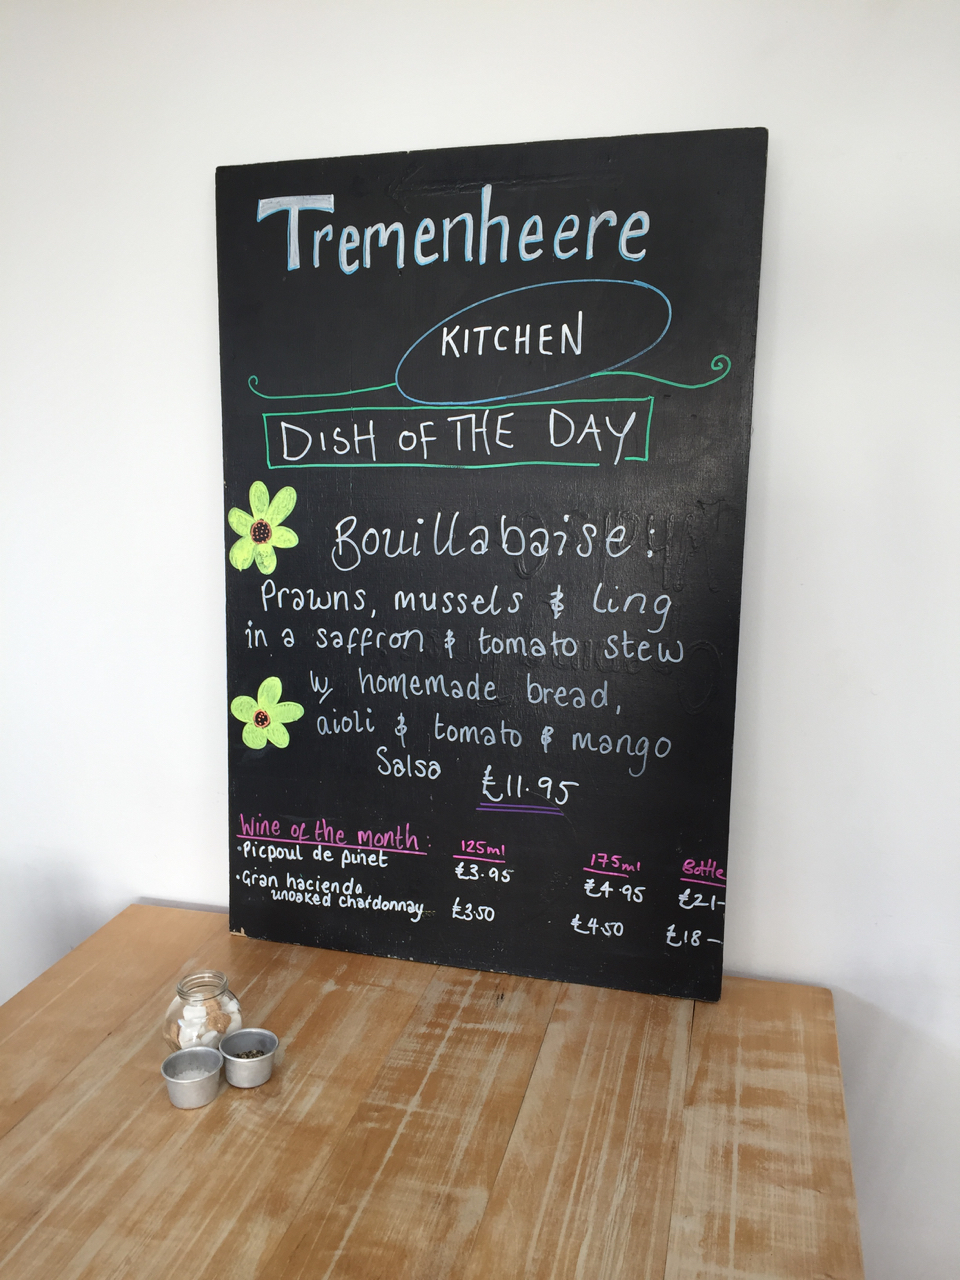 Tremenheere
KITCHEN
DISH OF THE DAY
Bouillabaise:
Prawns, mussels & ling
in a saffron & tomato stew
w/ homemade bread,
aioli & tomato & mango
Salsa £11.95
Wine of the month: 125ml 175ml Bottle
·Picpoul de pinet £3.95 £4.95 £21-
·Gran hacienda
unoaked chardonnay £3.50 £4.50 £18-